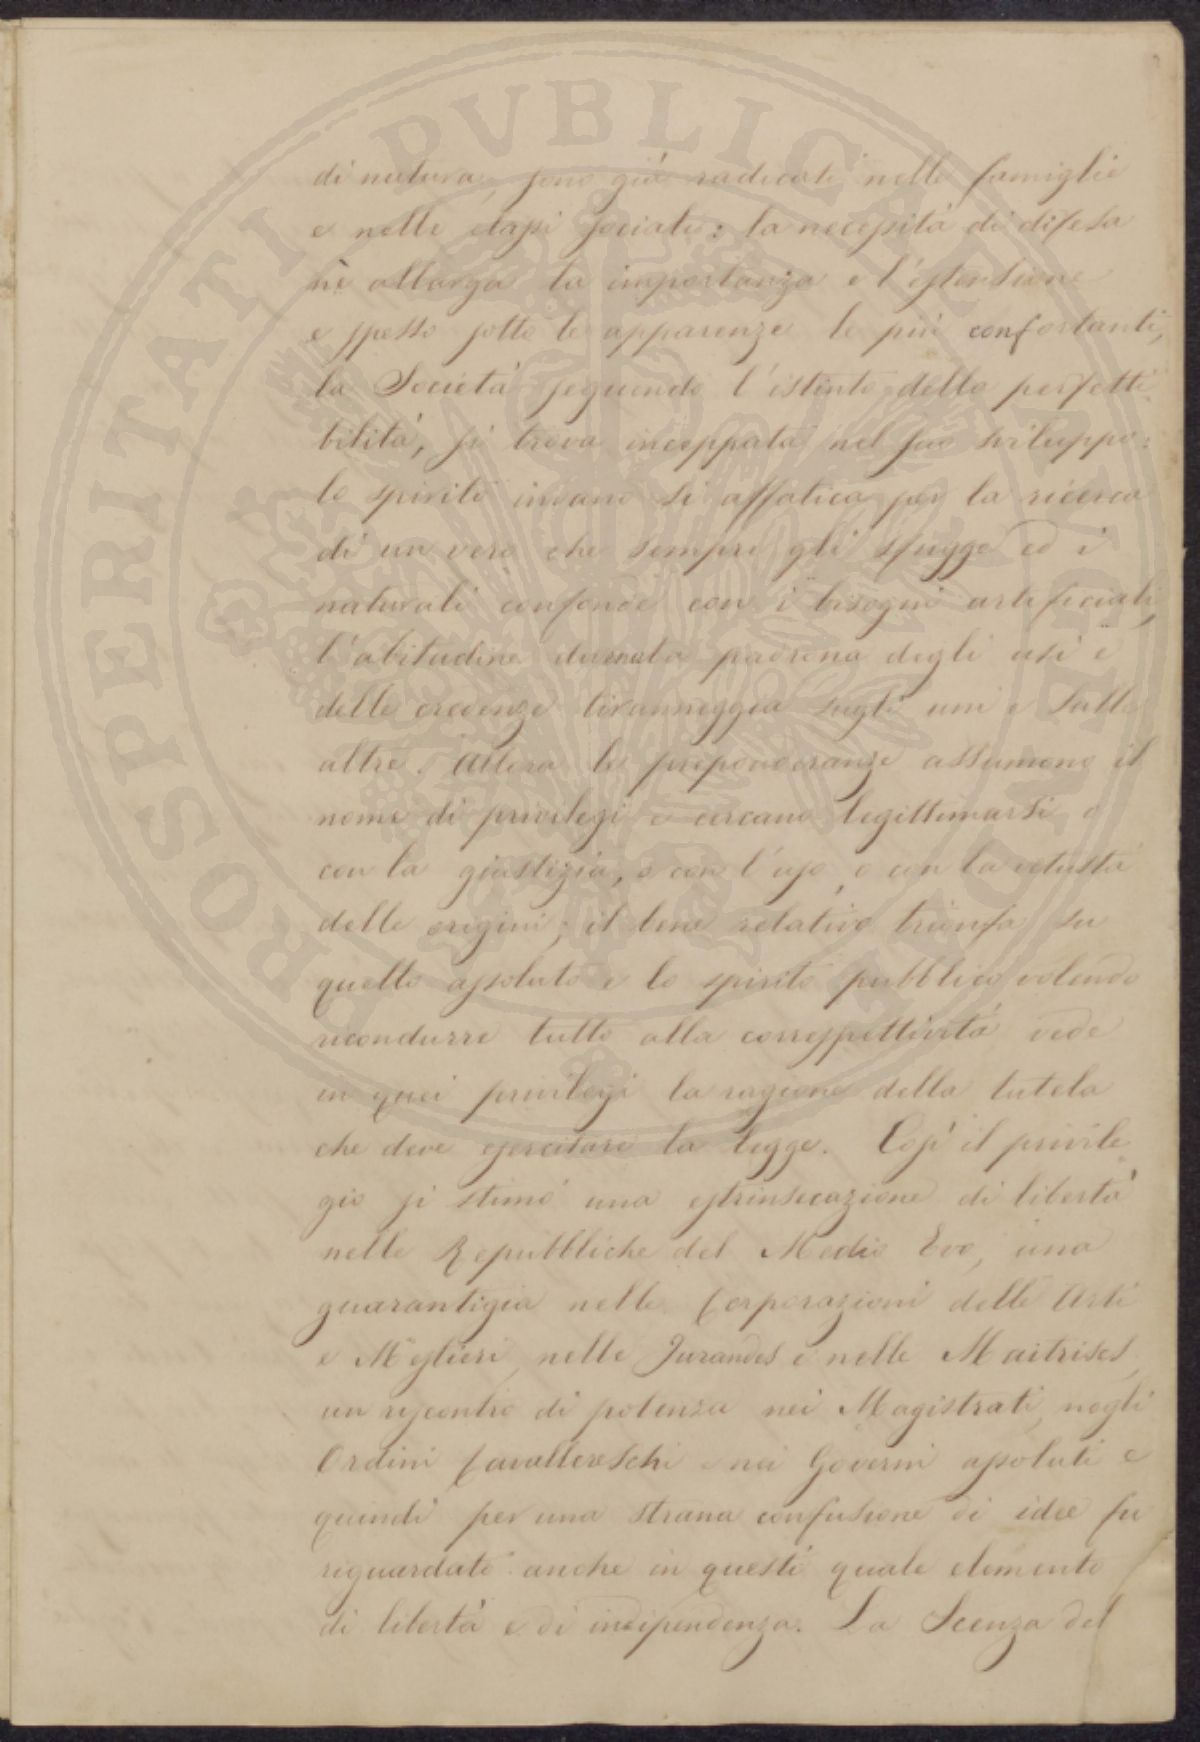 di natura, sono già radicati nelle famiglie
e nelle classi sociali: la necessità di difesa
ne allarga la importanza e l'estensione
e spesso sotto le apparenze le più confortanti,
la Società seguendo l'istinto della perfetti
bilità, si trova inceppata nel suo sviluppo:
lo spirito invano si affatica per la ricerca
di un vero che sempre gli sfugge ed i
naturali confonde con i bisogni artificiali,
l'abitudine divenuta padrona degli usi e
delle credenze tiranneggia sugli uni e sulle
altre. Allora le preponderanze assumono il
nome di privilegi e cercano legittimarsi o
con la giustizia, o con l'uso, o con la vetustà
delle origini; il bene relativo trionfa su
quello assoluto e lo spirito pubblico volendo
ricondurre tutto alla correspettività vede
in quei privilegi la ragione della tutela
che deve esercitare la legge. Così il privile
gio si stimò una estrinsecazione di libertà
nelle Repubbliche del Medio Evo, una
guarantigia nelle Corporazioni delle Arti
e Mestieri, nelle Jurandes e nelle Maitrises,
un riscontro di potenza nei Magistrati, negli
Ordini Cavallereschi e nei Governi assoluti e
quindi per una strana confusione di idee fu
riguardato anche in questi quale elemento
di libertà e di indipendenza. La Scenza del
PROSPERITATI PVBLICAE